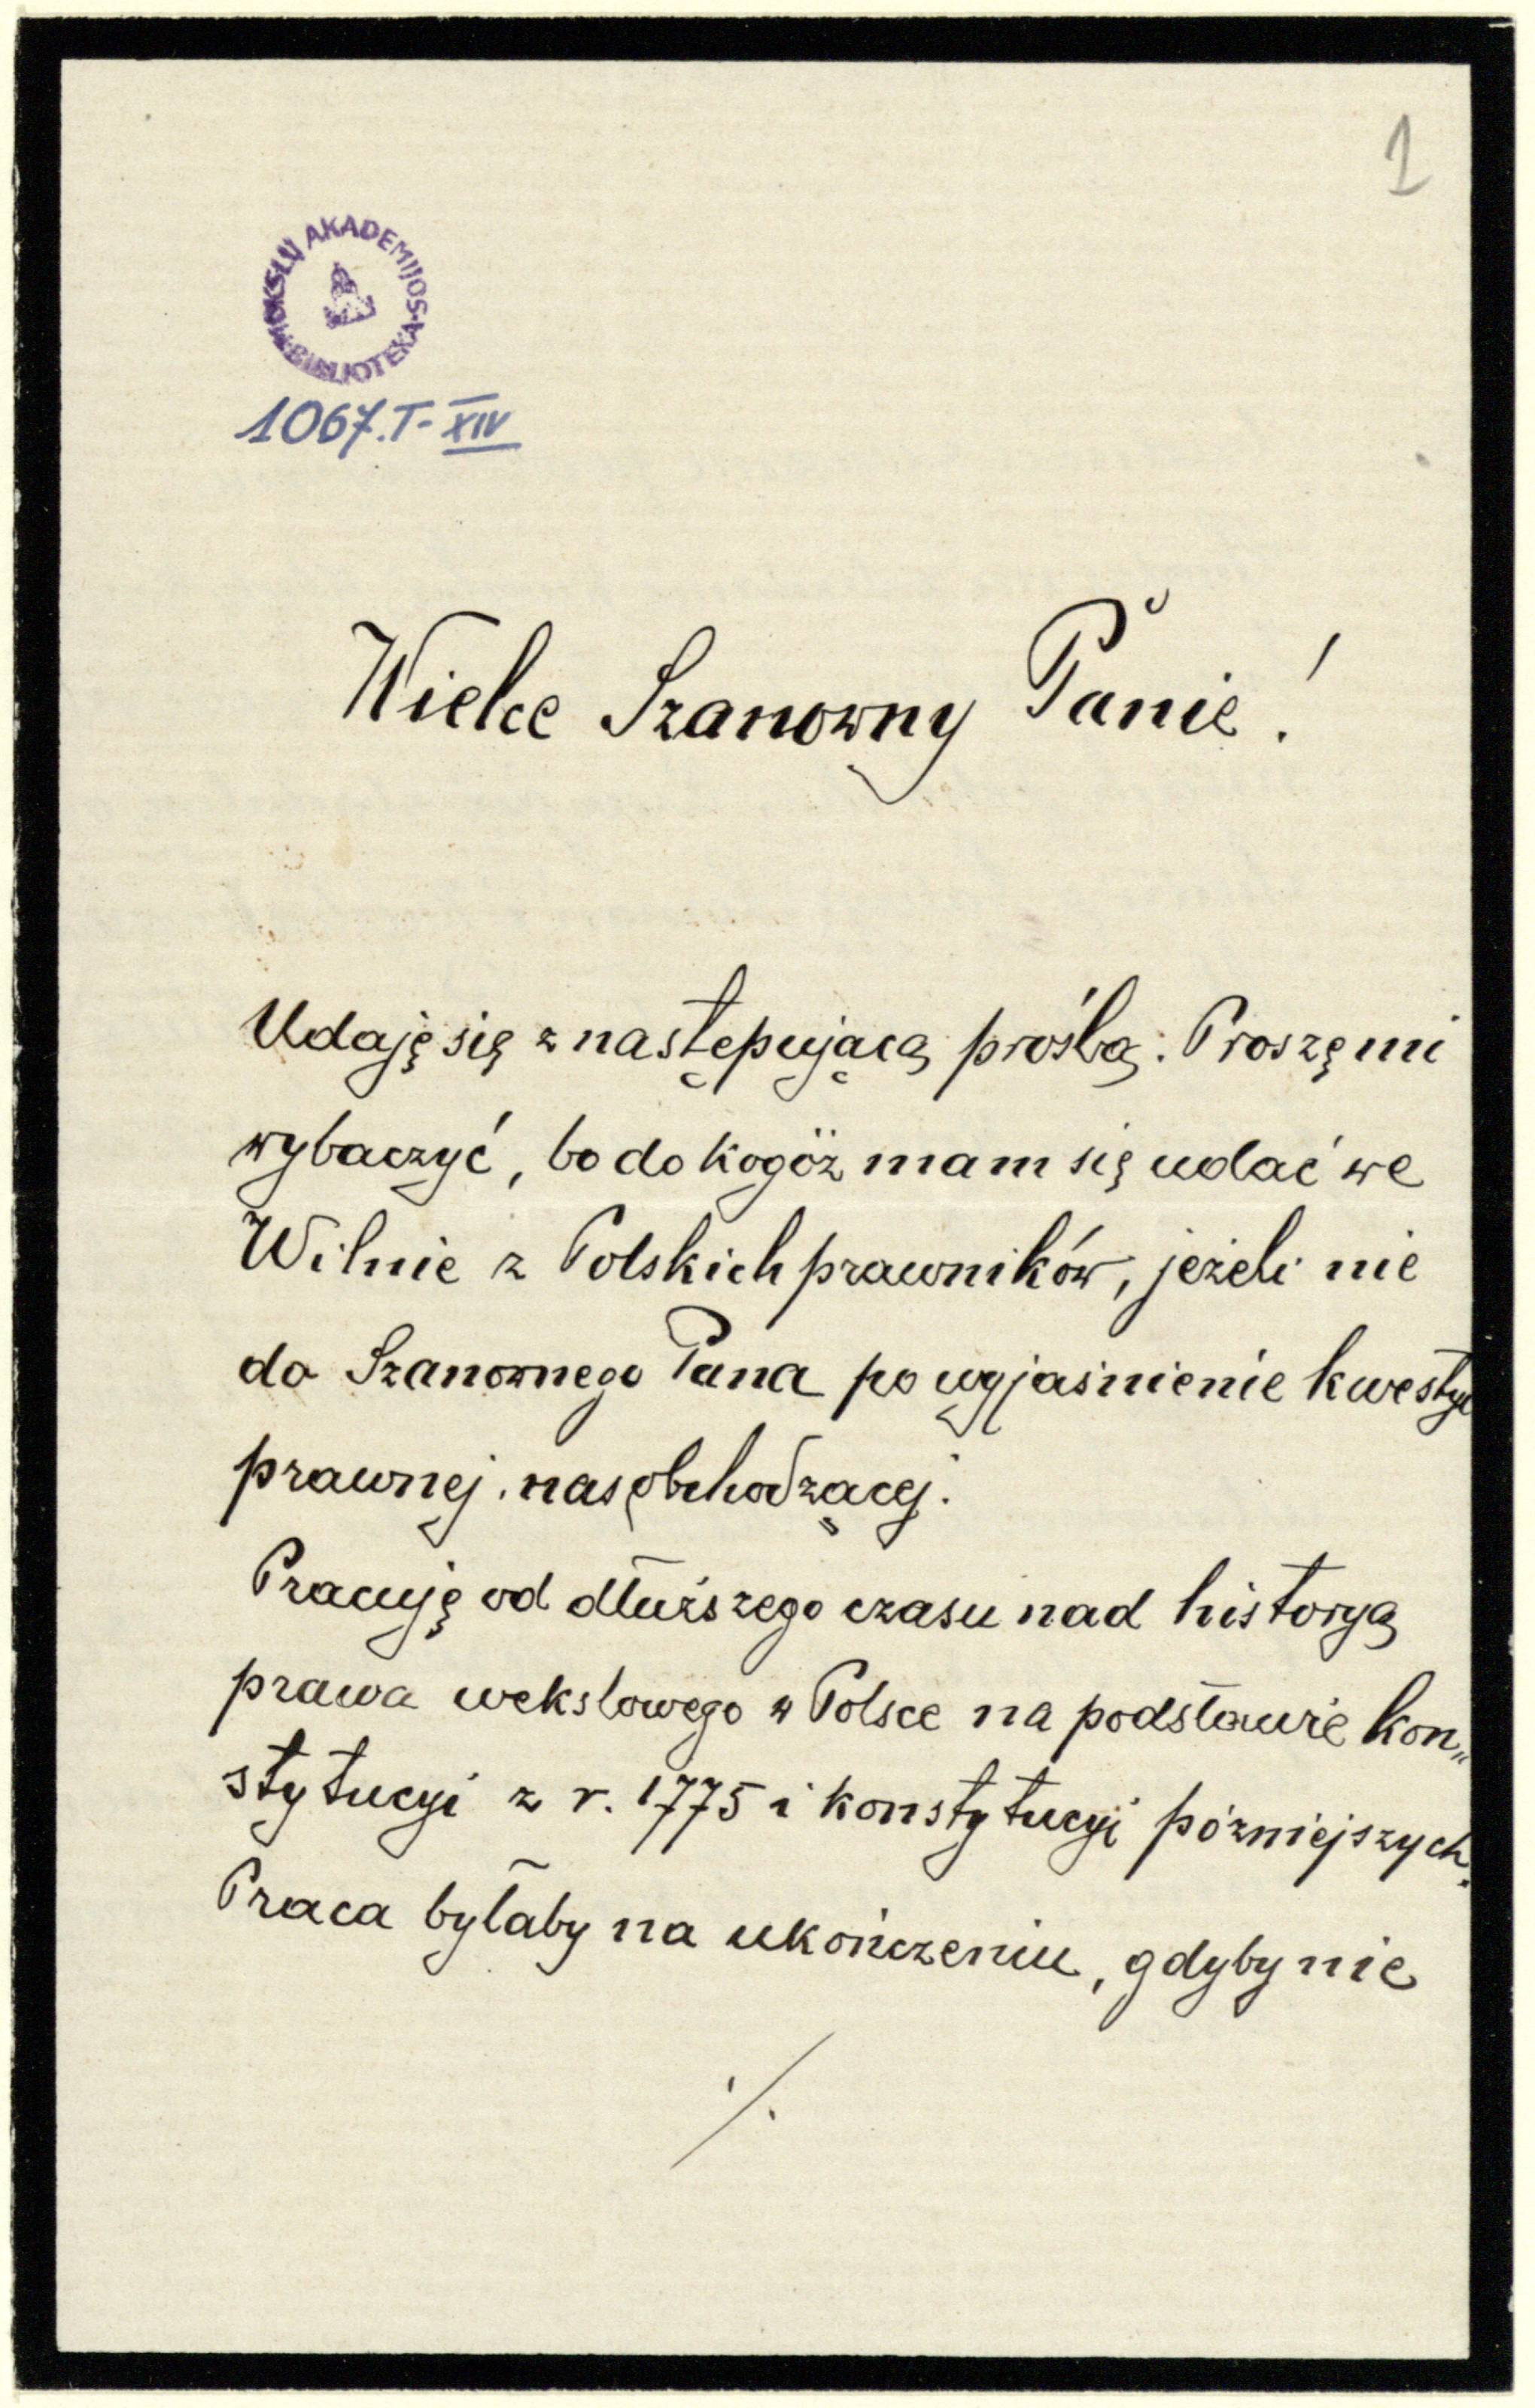 1
MOKSLŲ AKADEMIJOS
BIBLIOTEKA
1067.T-XIV
Wielce Szanowny Panie!
Udaję się z następującą prośbą: Proszę mi
wybaczyć, bo do kogoż mam się udać we
Wilnie z Polskich prawników, jeżeli nie
do Szanownego Pana po wyjaśnienie kwestyi
prawnej, nas obchodzącej.
Pracuję od dłuższego czasu nad historyą
prawa wekslowego w Polsce na podstawie kon„
stytucyi z r. 1775 i konstytucyi późniejszych.
Praca byłaby na ukończeniu, gdyby nie
./.